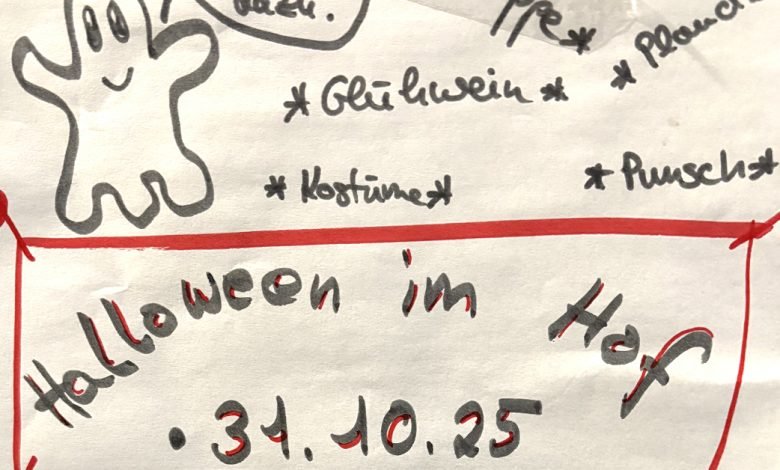 dazu.
*Glühwein*
*Kostüme*
*Punsch*
Halloween im Hof
• 31.10.25